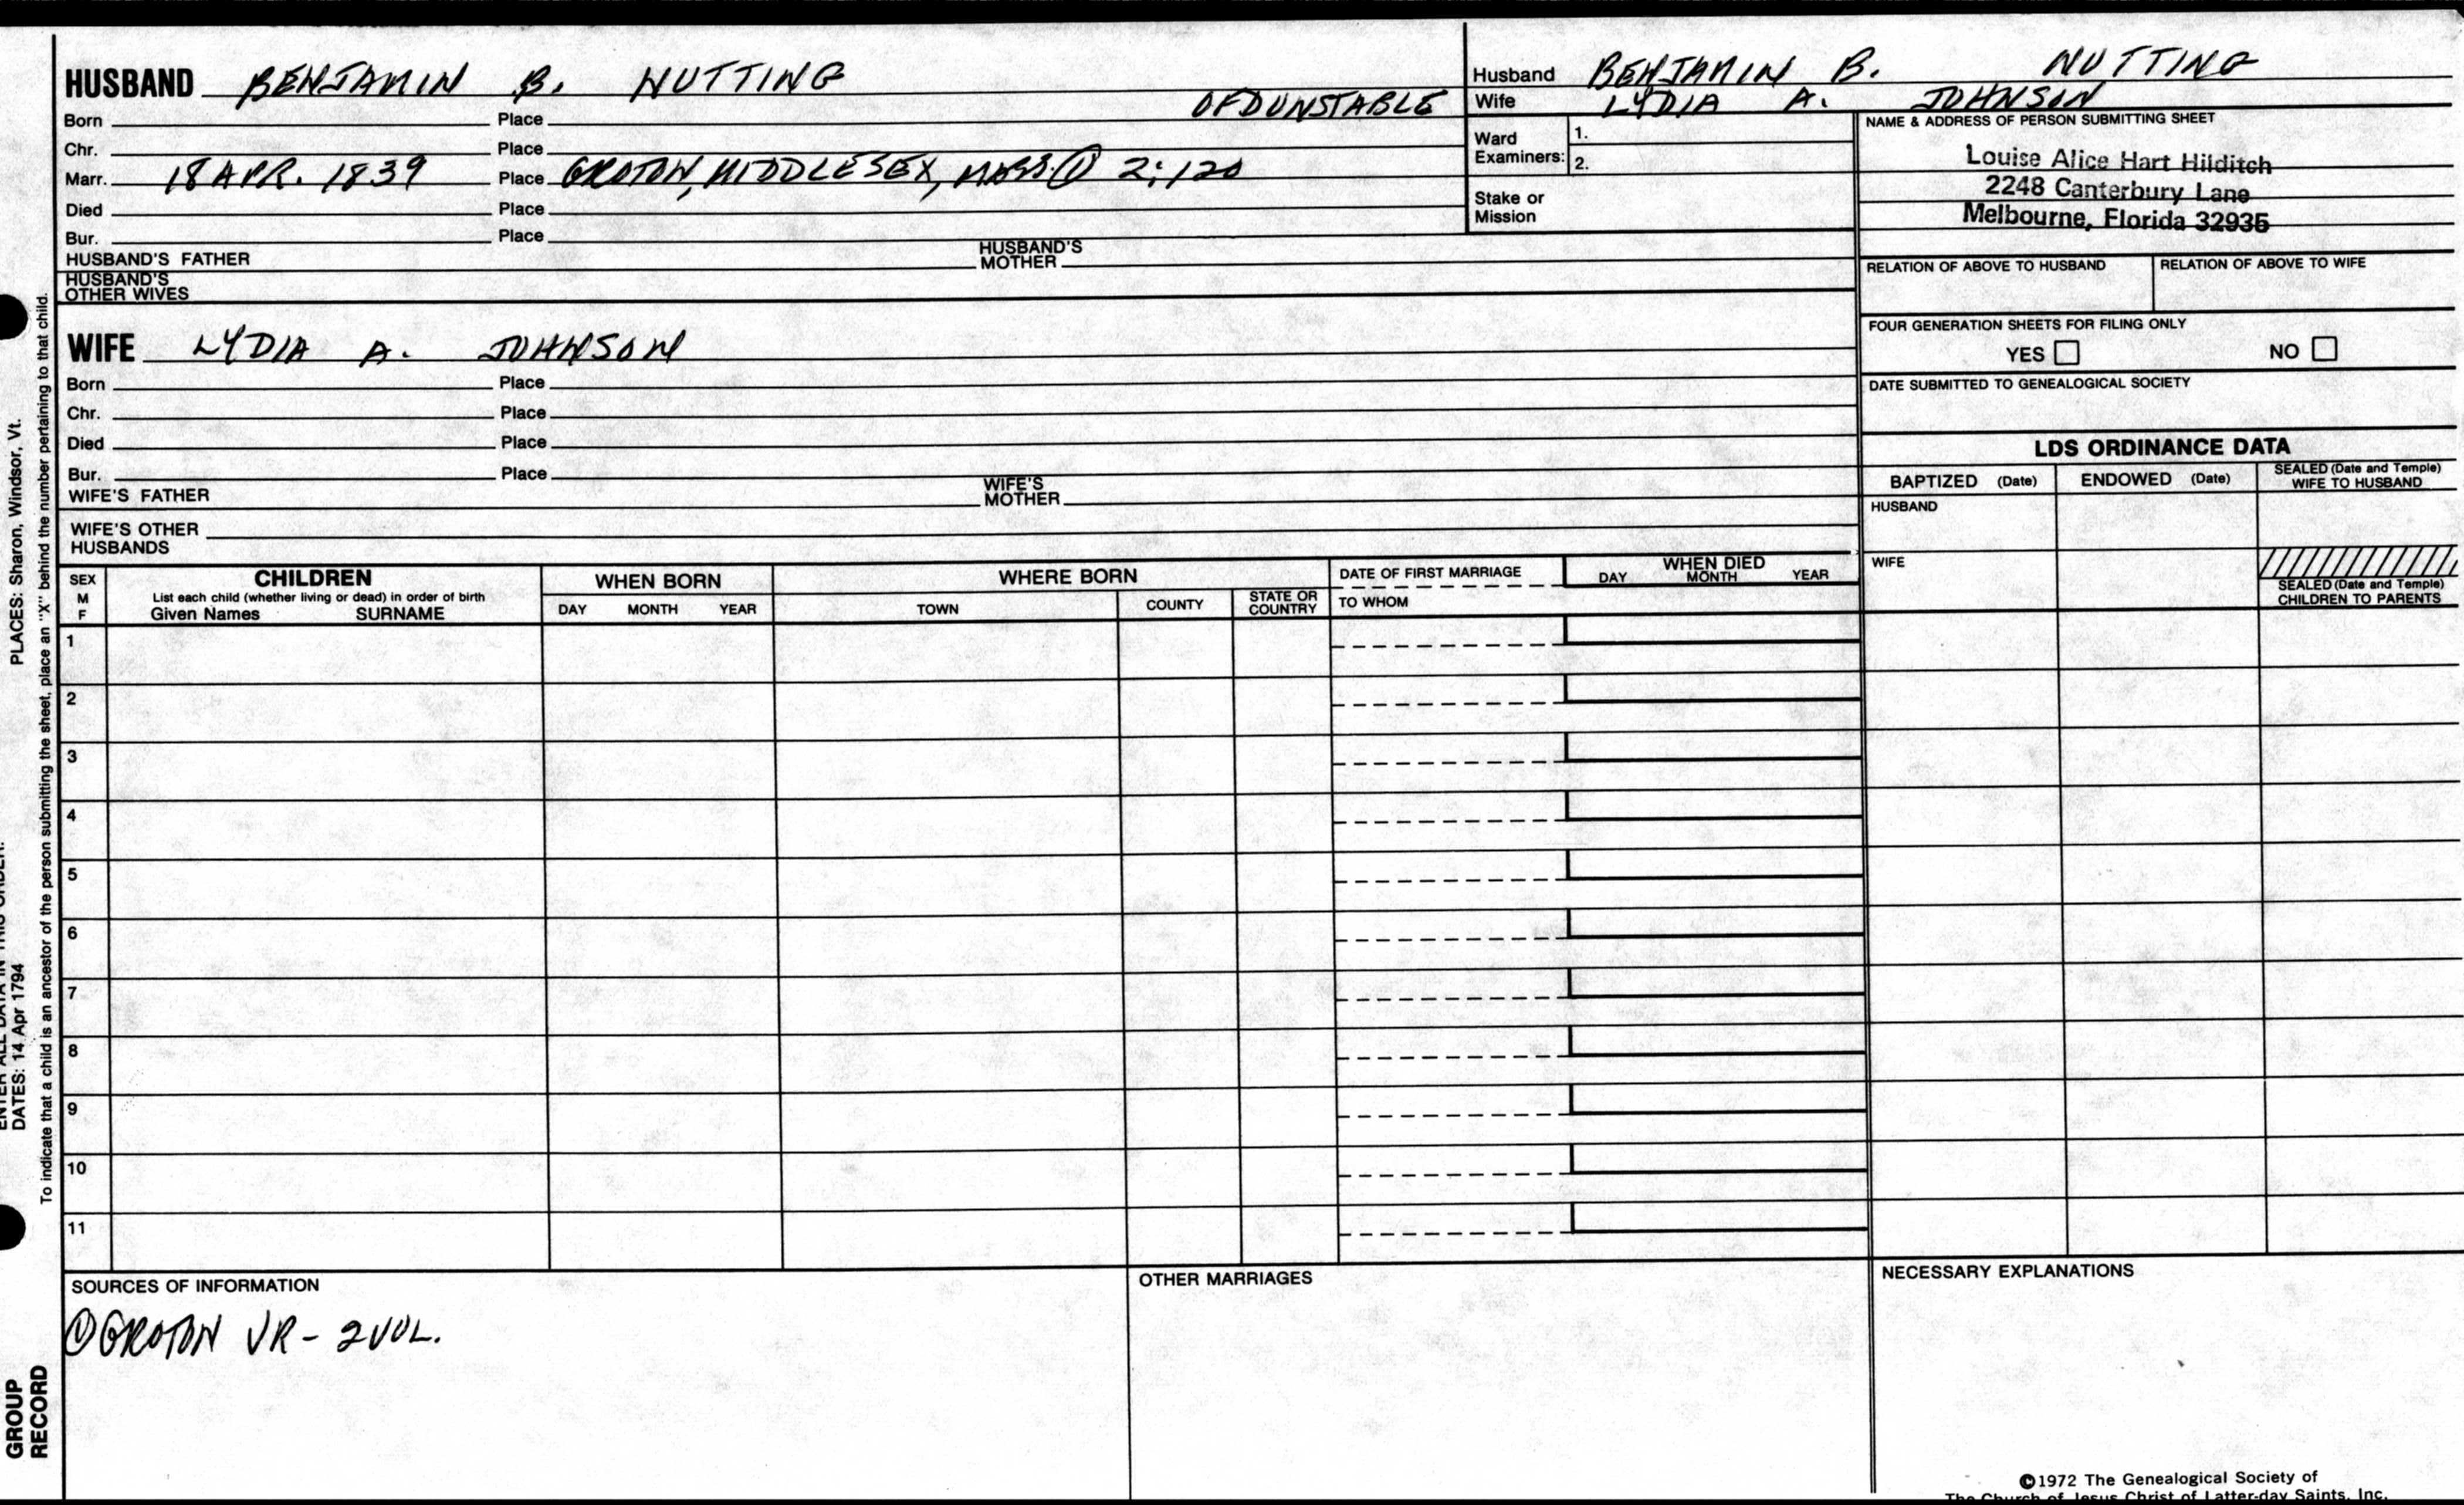 HUSBAND BENJAMIN B. NUTTING
OF DUNSTABLE
Born Place
Chr. Place
Marr. 18 APR. 1839 Place GROTON, MIDDLESEX, MASS. ① 2:120
Died Place
Bur. Place
HUSBAND'S FATHER HUSBAND'S MOTHER
HUSBAND'S OTHER WIVES
Husband BENJAMIN B. NUTTING
Wife LYDIA A. JOHNSON
Ward Examiners: 1.
2.
Stake or Mission
NAME & ADDRESS OF PERSON SUBMITTING SHEET
Louise Alice Hart Hilditch
2248 Canterbury Lane
Melbourne, Florida 32935
RELATION OF ABOVE TO HUSBAND RELATION OF ABOVE TO WIFE
FOUR GENERATION SHEETS FOR FILING ONLY
YES NO
DATE SUBMITTED TO GENEALOGICAL SOCIETY
WIFE LYDIA A. JOHNSON
Born Place
Chr. Place
Died Place
Bur. Place
WIFE'S FATHER WIFE'S MOTHER
WIFE'S OTHER HUSBANDS
LDS ORDINANCE DATA
BAPTIZED (Date) ENDOWED (Date) SEALED (Date and Temple) WIFE TO HUSBAND
HUSBAND
WIFE
SEALED (Date and Temple) CHILDREN TO PARENTS
SEX M F
CHILDREN
List each child (whether living or dead) in order of birth
Given Names SURNAME
WHEN BORN
DAY MONTH YEAR
WHERE BORN
TOWN COUNTY STATE OR COUNTRY
DATE OF FIRST MARRIAGE
TO WHOM
WHEN DIED
DAY MONTH YEAR
1
2
3
4
5
6
7
8
9
10
11
SOURCES OF INFORMATION
① GROTON VR - 2 VOL.
OTHER MARRIAGES
NECESSARY EXPLANATIONS
©1972 The Genealogical Society of
The Church of Jesus Christ of Latter-day Saints, Inc.
ENTER ALL DATA IN THIS ORDER:
DATES: 14 Apr 1794 PLACES: Sharon, Windsor, Vt.
To indicate that a child is an ancestor of the person submitting the sheet, place an "X" behind the number pertaining to that child.
GROUP
RECORD